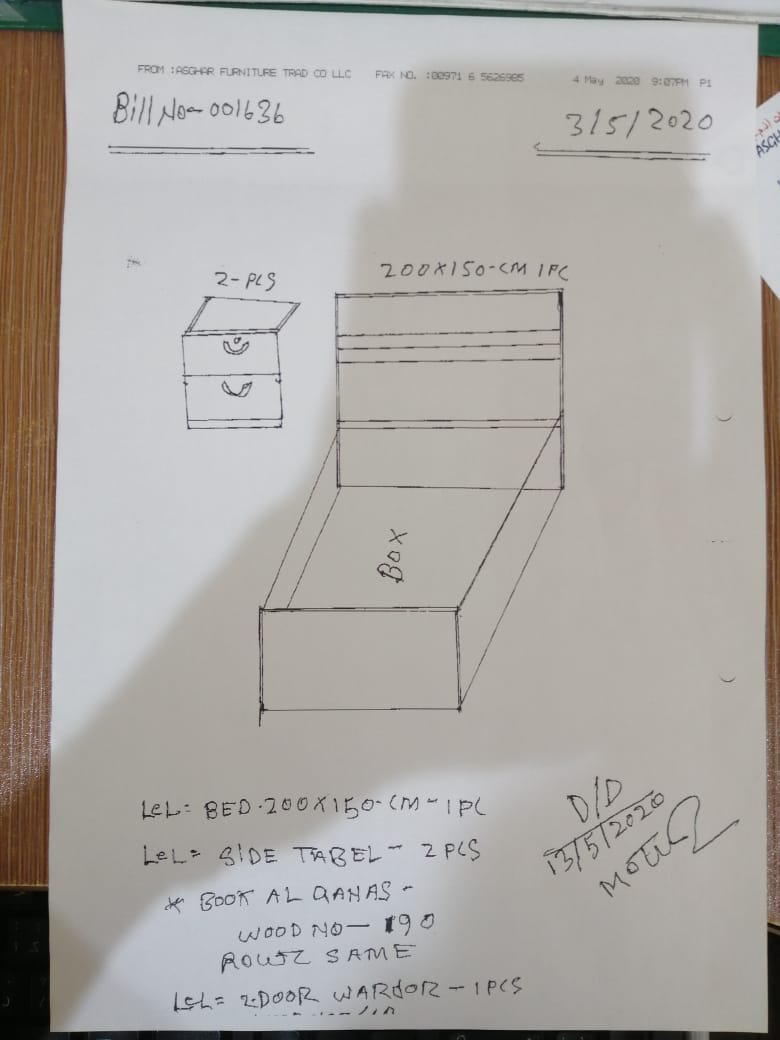 FROM :ASGHAR FURNITURE TRAD CO LLC FAX NO. :00971 6 5626985 4 May 2020 9:07PM P1
Bill No- 001636
3/5/2020
2-PCS
200X150-CM 1PC
BOX
LCL= BED-200X150-CM-1PC
LCL= SIDE TABEL- 2PCS
* BOOK AL QANAS-
WOOD NO- 190
SAME
LCL= 2-DOOR WARDOR-1PCS
D/D
13/5/2020
ASGH